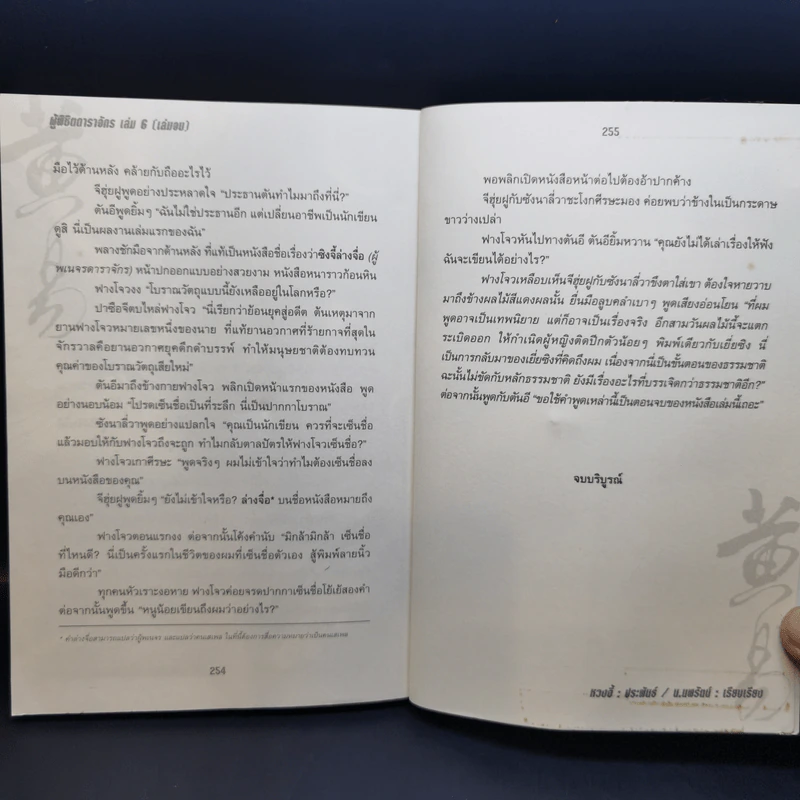 ผู้พิชิตดาราจักร เล่ม 6 (เล่มจบ)
มือไว้ด้านหลัง คล้ายกับถืออะไรไว้
จีฮุ่ยฝูพูดอย่างประหลาดใจ "ประธานตันทำไมมาถึงที่นี่?"
ตันอีพูดยิ้มๆ "ฉันไม่ใช่ประธานอีก แต่เปลี่ยนอาชีพเป็นนักเขียน
ดูสิ นี่เป็นผลงานเล่มแรกของฉัน"
พลางชักมือจากด้านหลัง ที่แท้เป็นหนังสือชื่อเรื่องว่าซิงจี้ล่างจื่อ (ผู้
พเนจรดาราจักร) หน้าปกออกแบบอย่างสวยงาม หนังสือหนาราวก้อนหิน
ฟางโจวงง "โบราณวัตถุแบบนี้ยังเหลืออยู่ในโลกหรือ?"
ปาซือจีตบไหล่ฟางโจว "นี่เรียกว่าย้อนยุคสู่อดีต ต้นเหตุมาจาก
ยานฟางโจวหมายเลขหนึ่งของนาย ที่แท้ยานอวกาศที่ร้ายกาจที่สุดใน
จักรวาลคือยานอวกาศยุคดึกดำบรรพ์ ทำให้มนุษยชาติต้องทบทวน
คุณค่าของโบราณวัตถุเสียใหม่"
ตันอีมาถึงข้างกายฟางโจว พลิกเปิดหน้าแรกของหนังสือ พูด
อย่างนอบน้อม "โปรดเซ็นชื่อเป็นที่ระลึก นี่เป็นปากกาโบราณ"
ซังนาลี่วาพูดอย่างแปลกใจ "คุณเป็นนักเขียน ควรที่จะเซ็นชื่อ
แล้วมอบให้กับฟางโจวถึงจะถูก ทำไมกลับตาลปัตรให้ฟางโจวเซ็นชื่อ?"
ฟางโจวเกาศีรษะ "พูดจริงๆ ผมไม่เข้าใจว่าทำไมต้องเซ็นชื่อลง
บนหนังสือของคุณ"
จีฮุ่ยฝูพูดยิ้มๆ "ยังไม่เข้าใจหรือ? ล่างจื่อ* บนชื่อหนังสือหมายถึง
คุณเอง"
ฟางโจวตอนแรกงง ต่อจากนั้นโค้งคำนับ "มิกล้ามิกล้า เซ็นชื่อ
ที่ไหนดี? นี่เป็นครั้งแรกในชีวิตของผมที่เซ็นชื่อตัวเอง สู้พิมพ์ลายนิ้ว
มือดีกว่า"
ทุกคนหัวเราะงอหาย ฟางโจวค่อยจรดปากกาเซ็นชื่อโย้เย้สองคำ
ต่อจากนั้นพูดขึ้น "หนูน้อยเขียนถึงผมว่าอย่างไร?"
254
255
พอพลิกเปิดหนังสือหน้าต่อไปต้องอ้าปากค้าง
จีฮุ่ยฝูกับซังนาลี่วาชะโงกศีรษะมอง ค่อยพบว่าข้างในเป็นกระดาษ
ขาวว่างเปล่า
ฟางโจวหันไปทางตันอี ตันอียิ้มหวาน "คุณยังไม่ได้เล่าเรื่องให้ฟัง
ฉันจะเขียนได้อย่างไร?"
ฟางโจวเหลือบเห็นจีฮุ่ยฝูกับซังนาลี่วาขึงตาใส่เขา ต้องใจหายวาบ
มาถึงข้างผลไม้สีแดงผลนั้น ยื่นมือลูบคลำเบาๆ พูดเสียงอ่อนโยน "ที่ผม
พูดอาจเป็นเทพนิยาย แต่ก็อาจเป็นเรื่องจริง อีกสามวันผลไม้นี้จะแตก
ระเบิดออก ให้กำเนิดผู้หญิงติดปีกตัวน้อยๆ พิมพ์เดียวกับเยี่ยซิง นี่
เป็นการกลับมาของเยี่ยซิงที่คิดถึงผม เนื่องจากนี่เป็นขั้นตอนของธรรมชาติ
ฉะนั้นไม่ขัดกับหลักธรรมชาติ ยังมีเรื่องอะไรที่บรรเจิดกว่าธรรมชาติอีก?"
ต่อจากนั้นพูดกับตันอี "ขอใช้คำพูดเหล่านี้เป็นตอนจบของหนังสือเล่มนี้เถอะ"
จบบริบูรณ์
หวงอี้ : ประพันธ์ / น.นพรัตน์ : เรียบเรียง